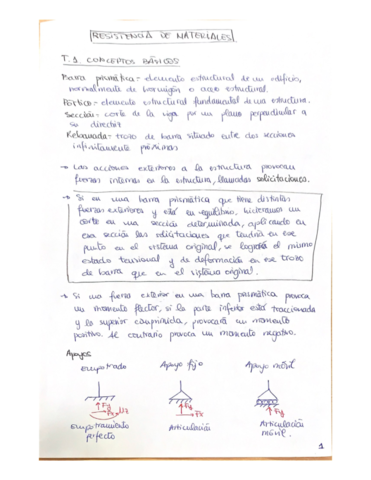 RESISTENCIA DE MATERIALES
T.1 CONCEPTOS BÁSICOS
Barra prismática:- elemento estructural de un edificio,
normalmente de hormigón o acero estructural.
Pórtico:- elemento estructural fundamental de una estructura.
Sección:- corte de la viga por un plano perpendicular a
su directriz
Rebanada:- trozo de barra situado entre dos secciones
infinitamente próximas
→ Las acciones exteriores a la estructura provocan
fuerzas internas en la estructura, llamadas solicitaciones.
→ Si en una barra prismática que tiene distintas
fuerzas exteriores y está en equilibrio, hiciéramos un
corte en una sección determinada, aplicando en
esa sección las solicitaciones que tendrá en ese
punto en el sistema original, se logrará el mismo
estado tensional y de deformación en ese trozo
de barra que en el sistema original.
→ Si una fuerza exterior en una barra prismática provoca
un momento flector, si la parte inferior está traccionada
y la superior comprimida, provocará un momento
positivo. Al contrario provoca un momento negativo.
Apoyos
Empotrado Apoyo fijo Apoyo móvil
Fy Fx Mz Fy Fx Fy
Empotramiento perfecto Articulación Articulación móvil.
1